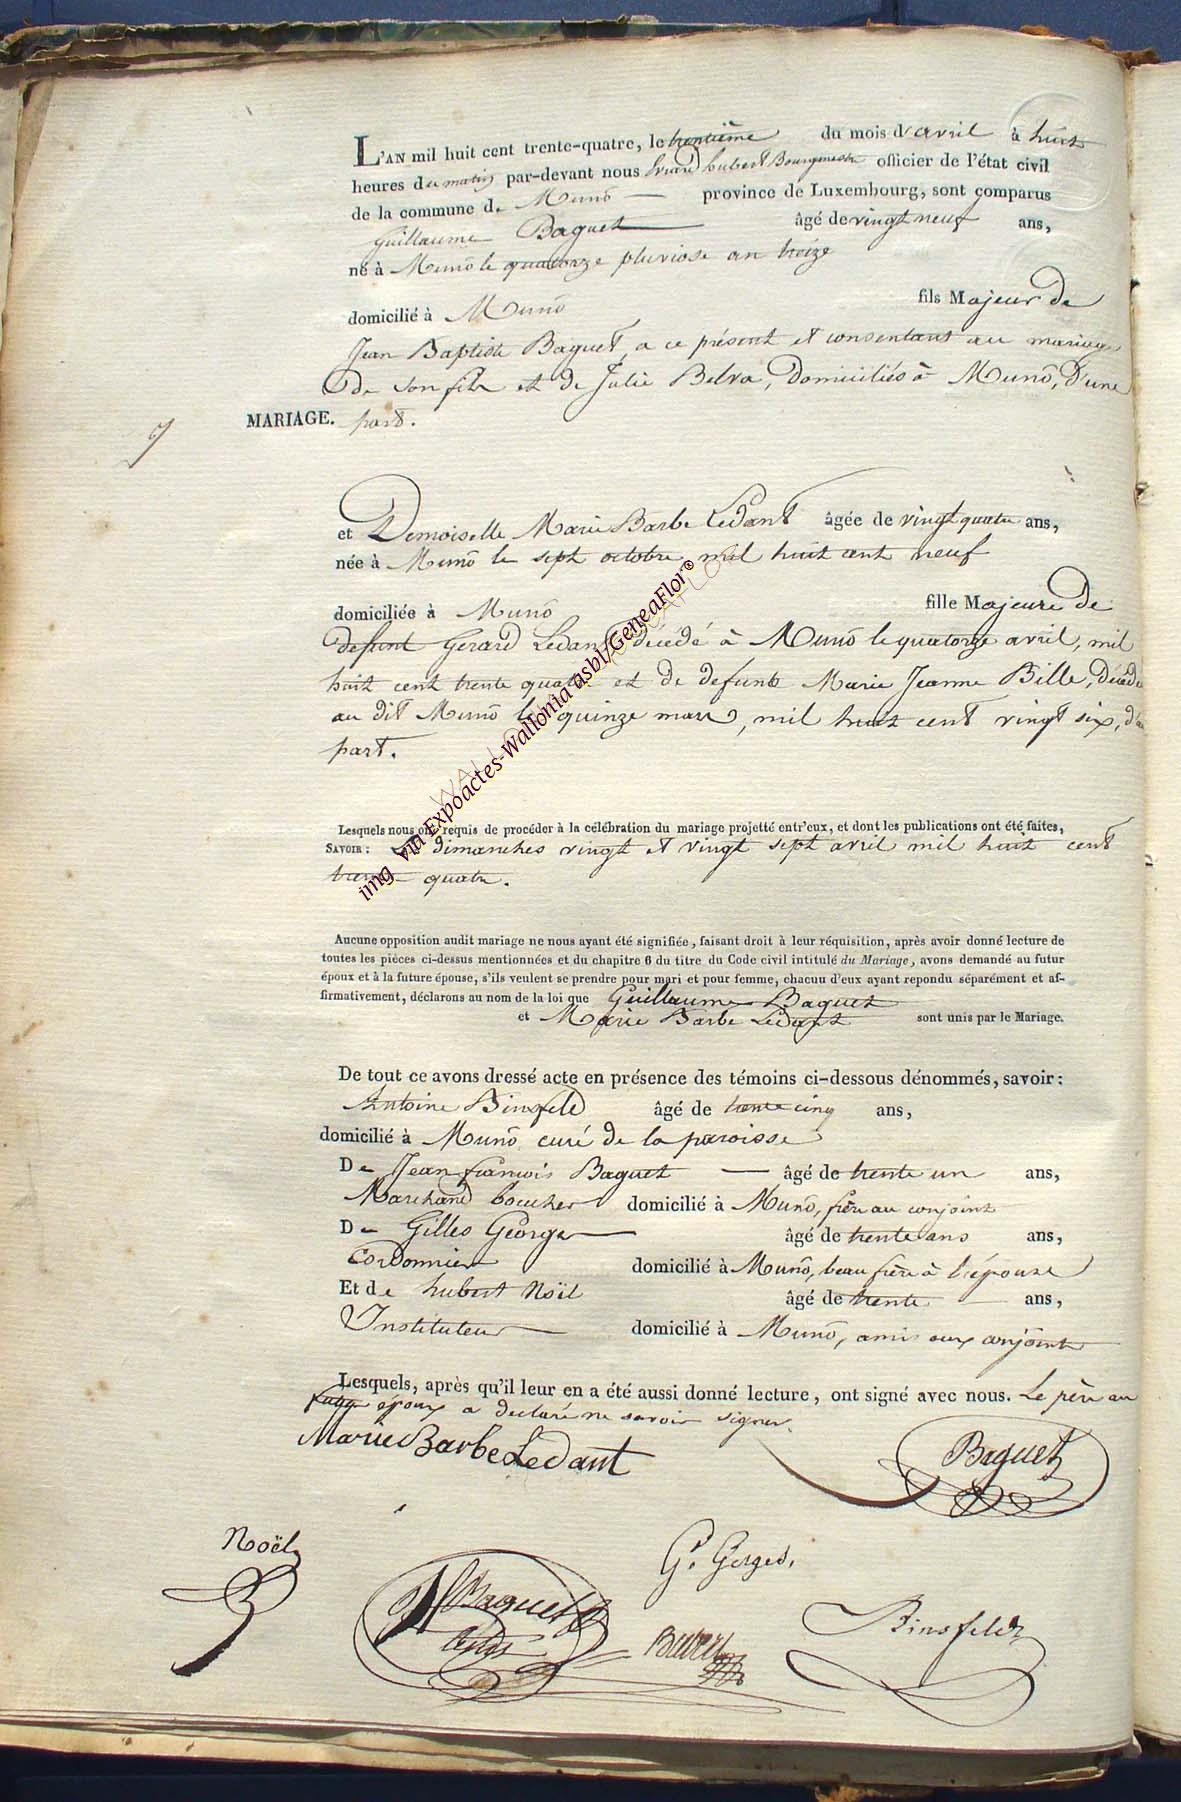 L'AN mil huit cent trente-quatre, le trentième du mois d'avril à huit
heures du matin par-devant nous hubert Bourgmestre officier de l'état civil
de la commune de Muno province de Luxembourg, sont comparus
Guillaume Baguet âgé de vingt neuf ans,
né à Muno le quatorze pluviose an treize
domicilié à Muno fils Majeur de
Jean Baptiste Baguet, a ce présent et consentant au mariage
de son fils et de Julie Belva, domiciliés à Muno, d'une
MARIAGE. part.
et Demoiselle Marie Barbe Ledant âgée de vingt quatre ans,
née à Muno le sept octobre mil huit cent neuf
domiciliée à Muno fille Majeure de
defunt Gerard Ledant décédé à Muno le quatorze avril, mil
huit cent trente quatre et de defunte Marie Jeanne Bille, décédée
au dit Muno le quinze mars, mil huit cent vingt six, d'au
part.
Lesquels nous ont requis de procéder à la célébration du mariage projetté entr'eux, et dont les publications ont été faites,
SAVOIR : Les dimanches vingt et vingt sept avril mil huit cent
trente quatre.
Aucune opposition audit mariage ne nous ayant été signifiée, faisant droit à leur réquisition, après avoir donné lecture de
toutes les pièces ci-dessus mentionnées et du chapitre 6 du titre du Code civil intitulé du Mariage, avons demandé au futur
époux et à la future épouse, s'ils veulent se prendre pour mari et pour femme, chacuu d'eux ayant repondu séparément et af-
firmativement, déclarons au nom de la loi que Guillaume Baguet
et Marie Barbe Ledant sont unis par le Mariage.
De tout ce avons dressé acte en présence des témoins ci-dessous dénommés, savoir :
Antoine Binsfeld âgé de trente cinq ans,
domicilié à Muno curé de la paroisse
De Jean françois Baguet âgé de trente un ans,
Marchand boucher domicilié à Muno, frère au conjoint
De Gilles Georges âgé de trente ans ans,
Cordonnier domicilié à Muno, beau frère à l'épouse
Et de hubert Noël âgé de trente ans,
Instituteur domicilié à Muno, amis aux conjoints
Lesquels, après qu'il leur en a été aussi donné lecture, ont signé avec nous. Le père au
futur époux a declaré ne savoir signer.
Marie Barbe Ledant Baguet
Noël G. Gerges.
Baguet Binsfeld
img via Expoactes-Wallonia asbl/GeneaFlor©